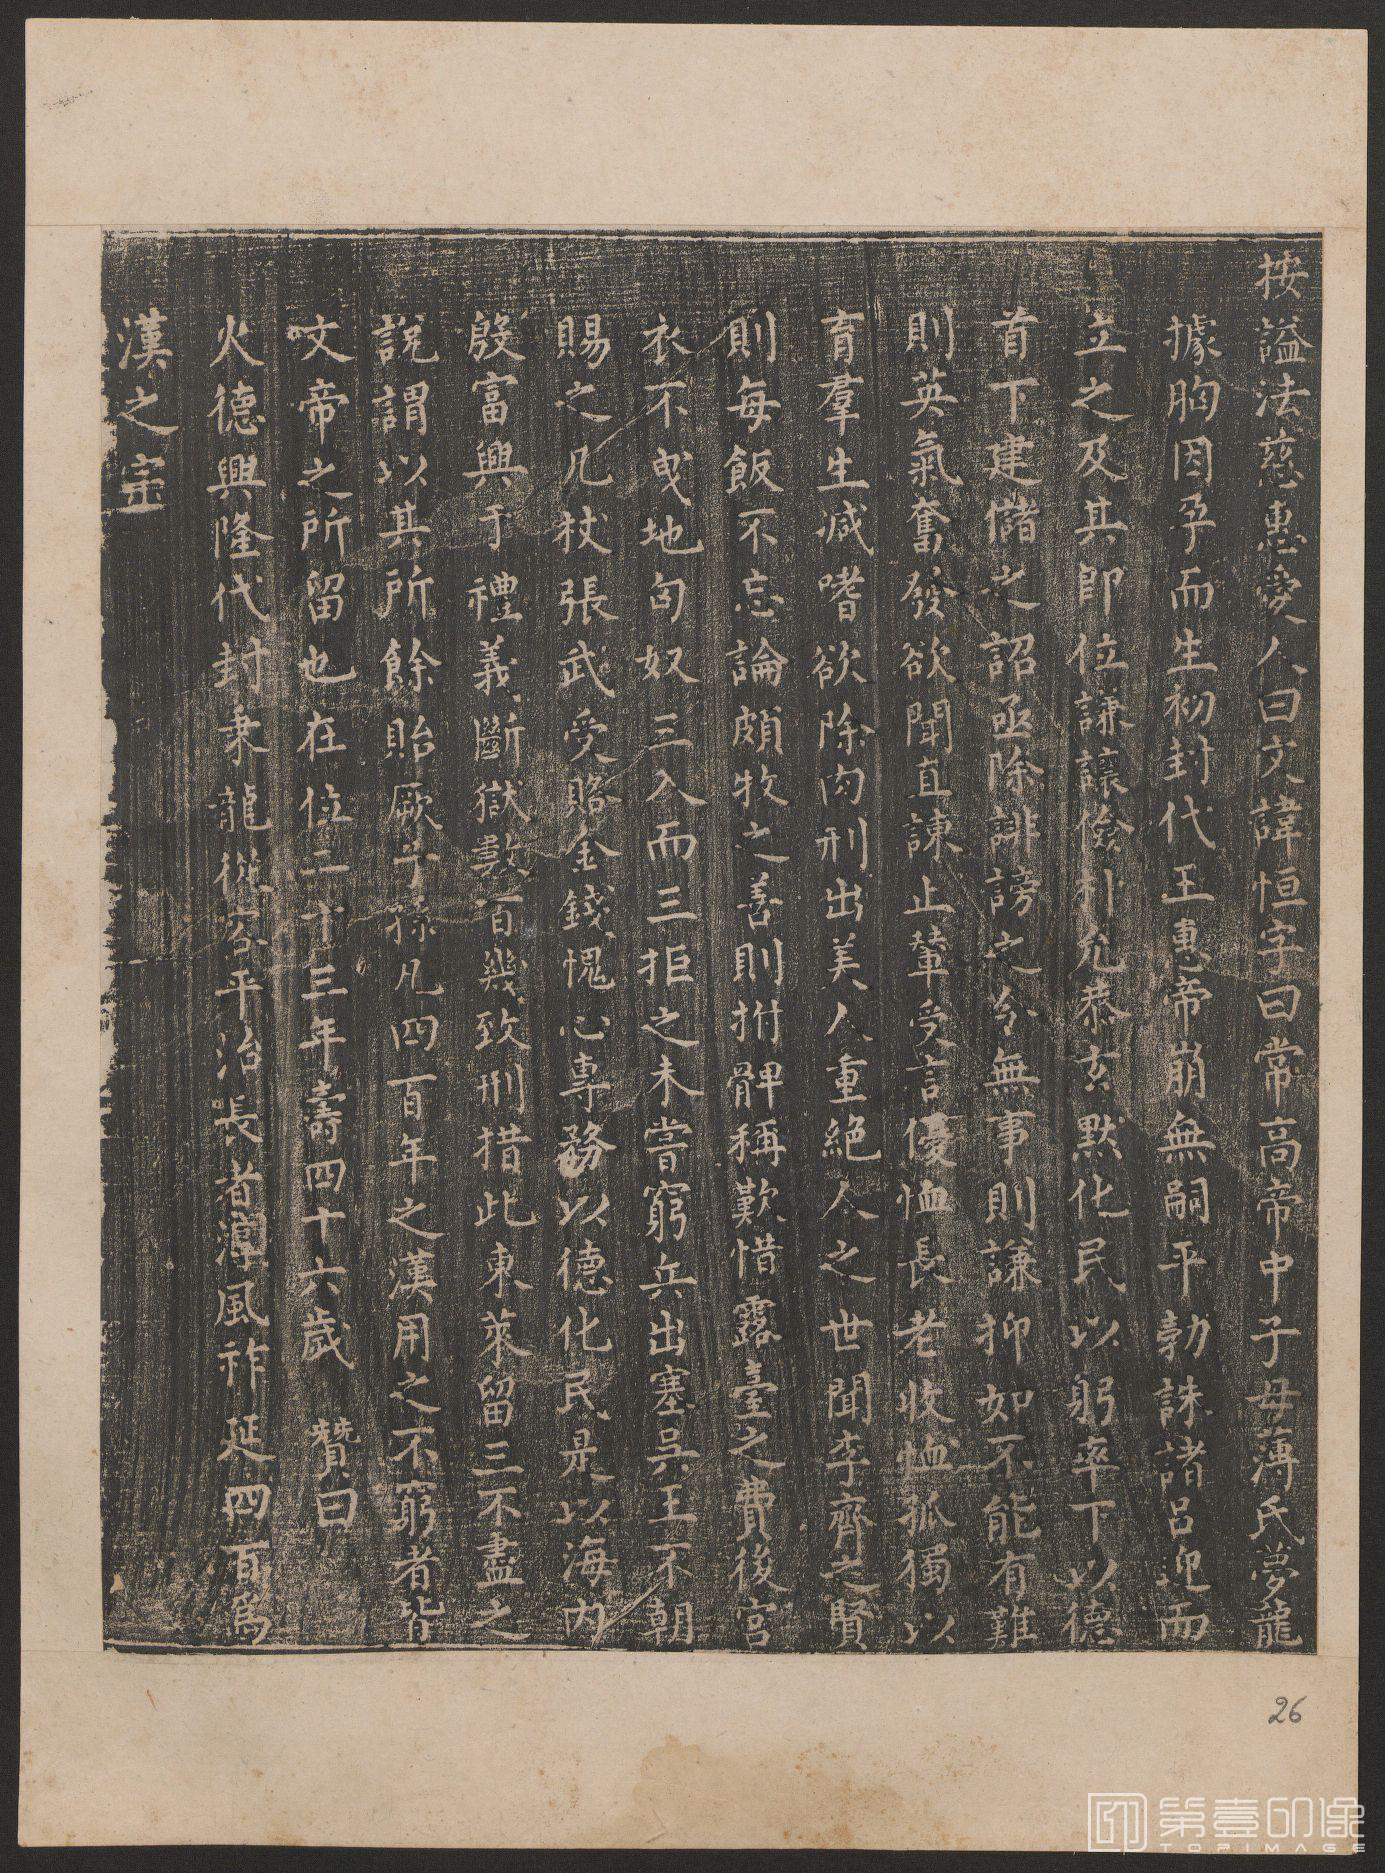 按謚法慈惠愛人曰文諱恒字曰常高帝中子母薄氏夢龍
據胸因孕而生初封代王惠帝崩無嗣平勃誅諸呂迎而
立之及其即位謙讓儉朴允恭玄默化民以躬率下以德
首下建儲之詔亟除誹謗之令無事則謙抑如不能有難
則英氣奮發欲聞直諫止輦受言優恤長老收恤孤獨以
育羣生減嗜欲除肉刑出美人重絕人之世聞李齊之賢
則每飯不忘論頗牧之善則拊髀稱歎惜露臺之費後宮
衣不曳地匈奴三入而三拒之未嘗窮兵出塞吳王不朝
賜之几杖張武受賂金錢愧心專務以德化民是以海內
殷富興于禮義斷獄數百幾致刑措此東萊留三不盡之
說謂以其所餘貽厥子孫凡四百年之漢用之不窮者皆
文帝之所留也在位二十三年壽四十六歲 贊曰
火德興隆代封乘龍從容平治長者淳風祚延四百為
漢之宗
26
第壹印像
TOPIMAGE